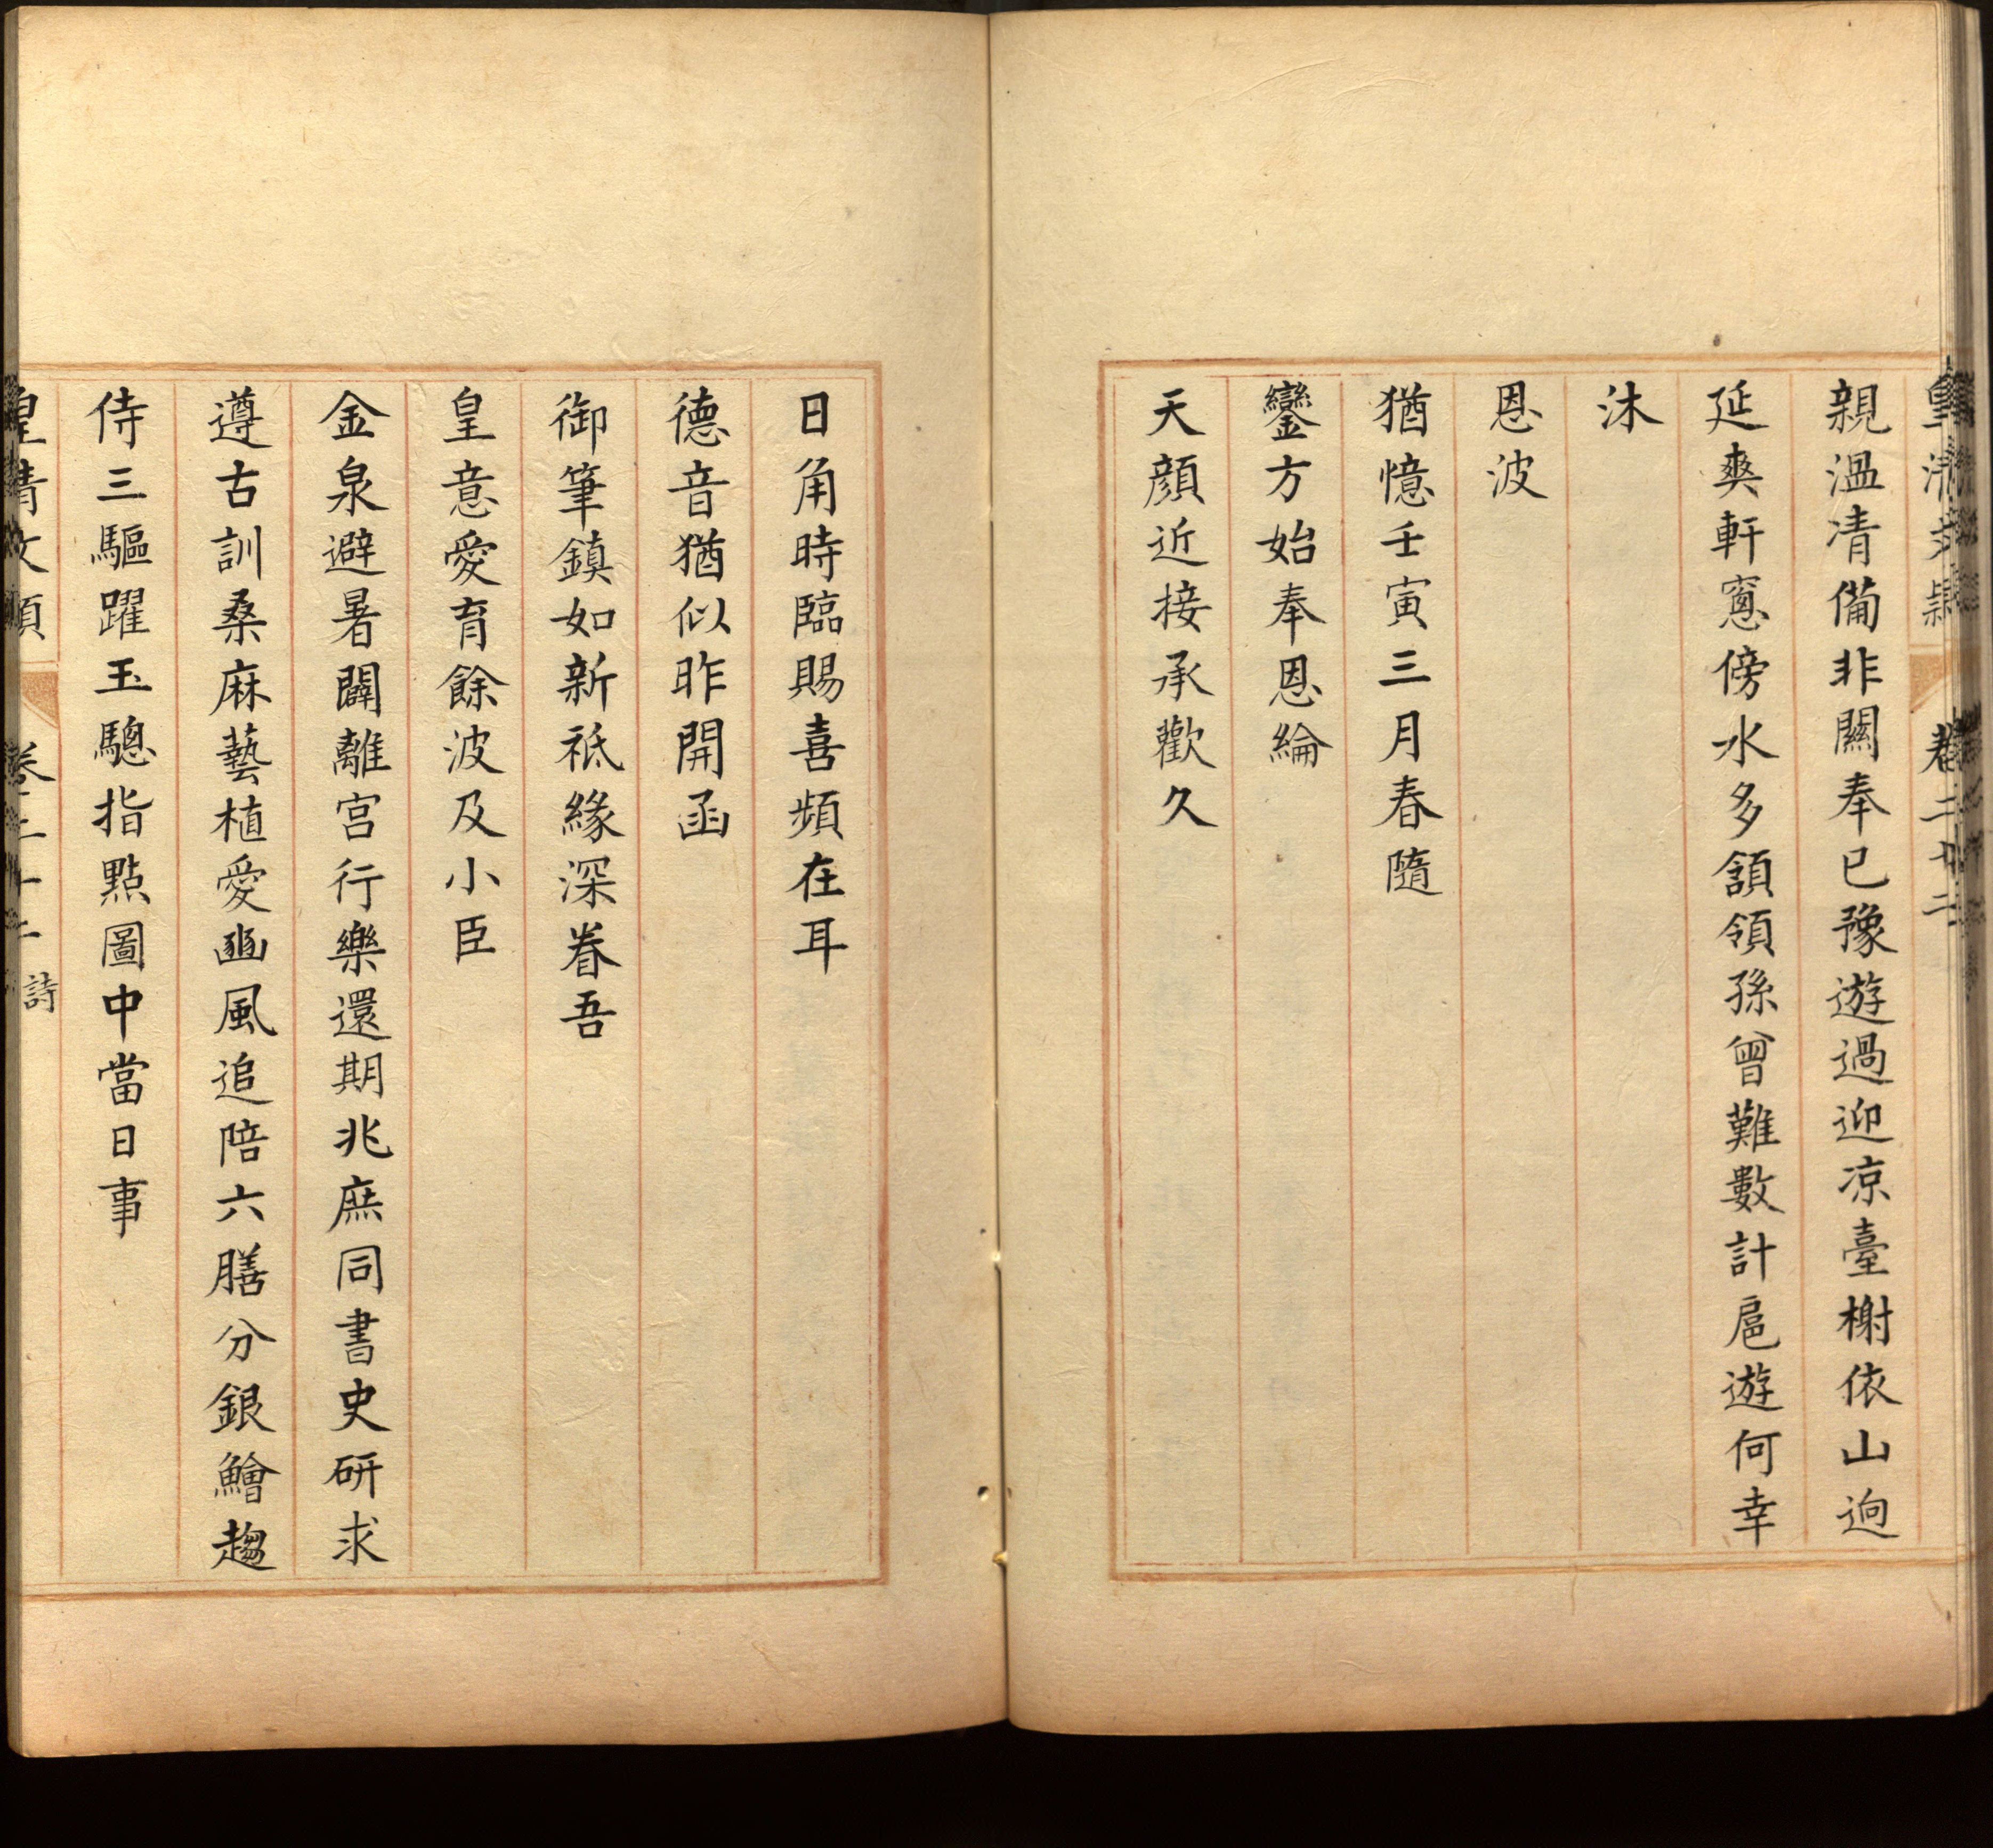 皇清文穎 卷二十二
親温凊備非闗奉已豫遊過迎凉臺榭依山逈
延爽軒窓傍水多頷領孫曾難數計扈遊何幸
沐
恩波
猶憶壬寅三月春隨
鑾方始奉恩綸
天顔近接承歡久
日角時臨賜喜頻在耳
德音猶似昨開函
御筆鎮如新祗緣深眷吾
皇意愛育餘波及小臣
金泉避暑闢離宫行樂還期兆庶同書史研求
遵古訓桑麻藝植愛豳風追陪六膳分銀鱠趨
侍三驅躍玉驄指點圖中當日事
皇清文穎 卷二十二 詩